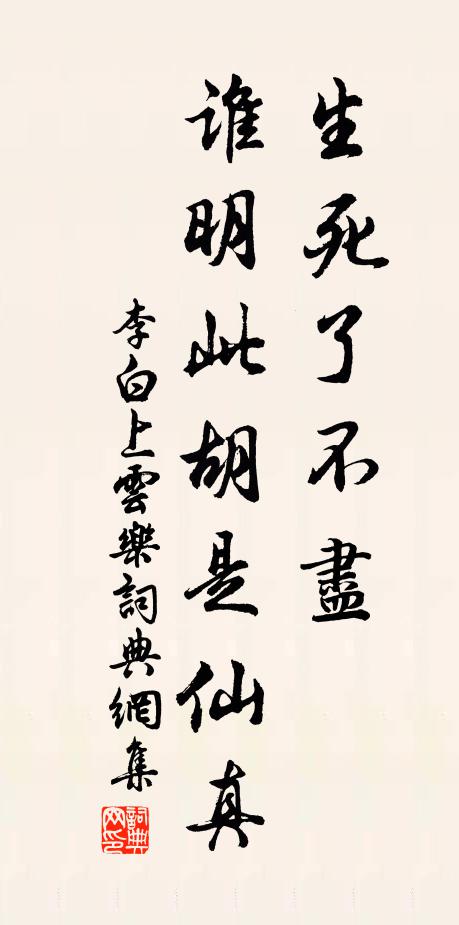 生死了不盡
谁明此胡是仙真
李白上雲樂詞典網集
詞典网印